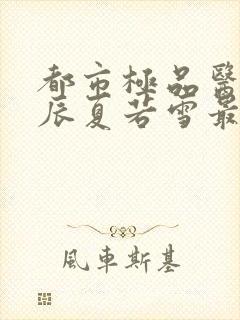 都市極品醫
辰夏若雪最
風車斯基